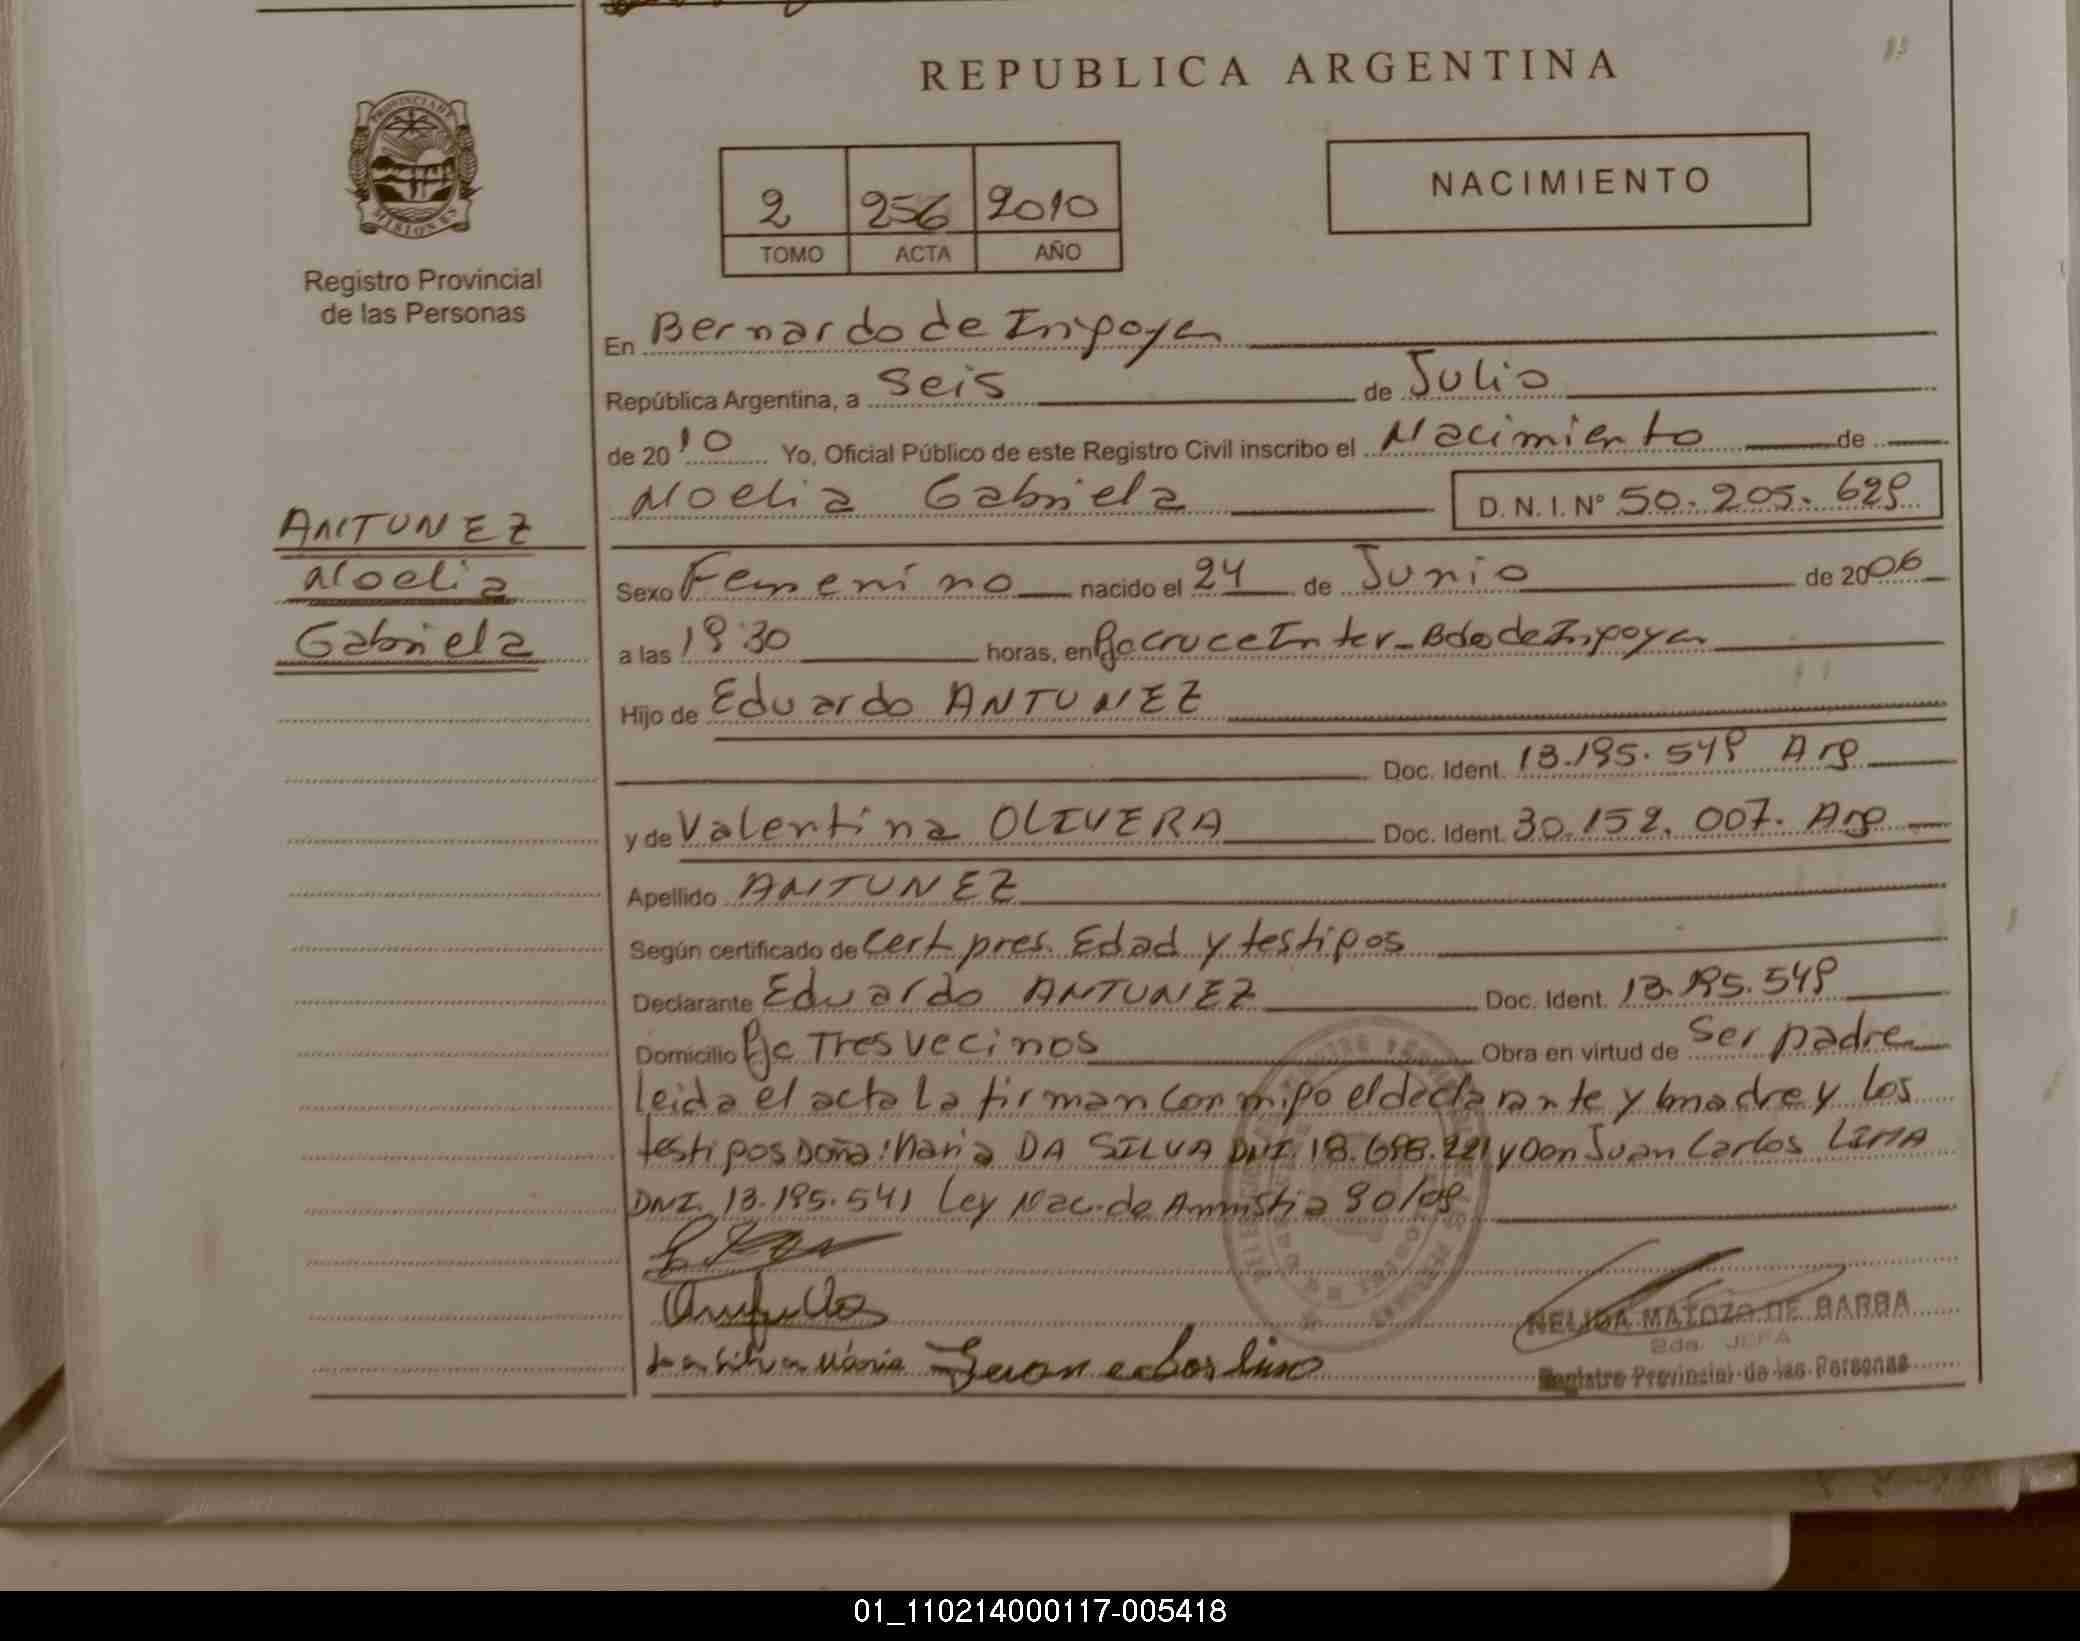 REPUBLICA ARGENTINA
PROVINCIA DE
MISIONES
Registro Provincial
de las Personas
2 256 2010
TOMO ACTA AÑO
NACIMIENTO
En Bernardo de Irigoyen
República Argentina, a Seis de Julio
de 2010 Yo, Oficial Público de este Registro Civil inscribo el Nacimiento de
Noelia Gabriela D. N. I. Nº 50.205.629
ANTUNEZ
Noelia
Gabriela
Sexo Femenino nacido el 24 de Junio de 2006
a las 19:30 horas, en Pje cruce Inter-Bdo de Irigoyen
Hijo de Eduardo ANTUNEZ
Doc. Ident. 13.195.549 Arg
y de Valentina OLIVERA Doc. Ident. 30.152.007. Arg
Apellido ANTUNEZ
Según certificado de Cert pres. Edad y testigos
Declarante Eduardo ANTUNEZ Doc. Ident. 13.195.549
Domicilio Pje Tres vecinos Obra en virtud de Ser padre
leida el acta la firman conmigo el declarante y la madre y los
testigos Doña: Maria DA SILVA DNI. 18.698.221 y Don Juan Carlos LIMA
DNI. 13.195.541 Ley Nac. de Amnistia 90/09
da Silva Mária Juan carlos lima
NELIDA MATOZO DE BARBA
2da. JEFA
Registro Provincial de las Personas
01_110214000117-005418